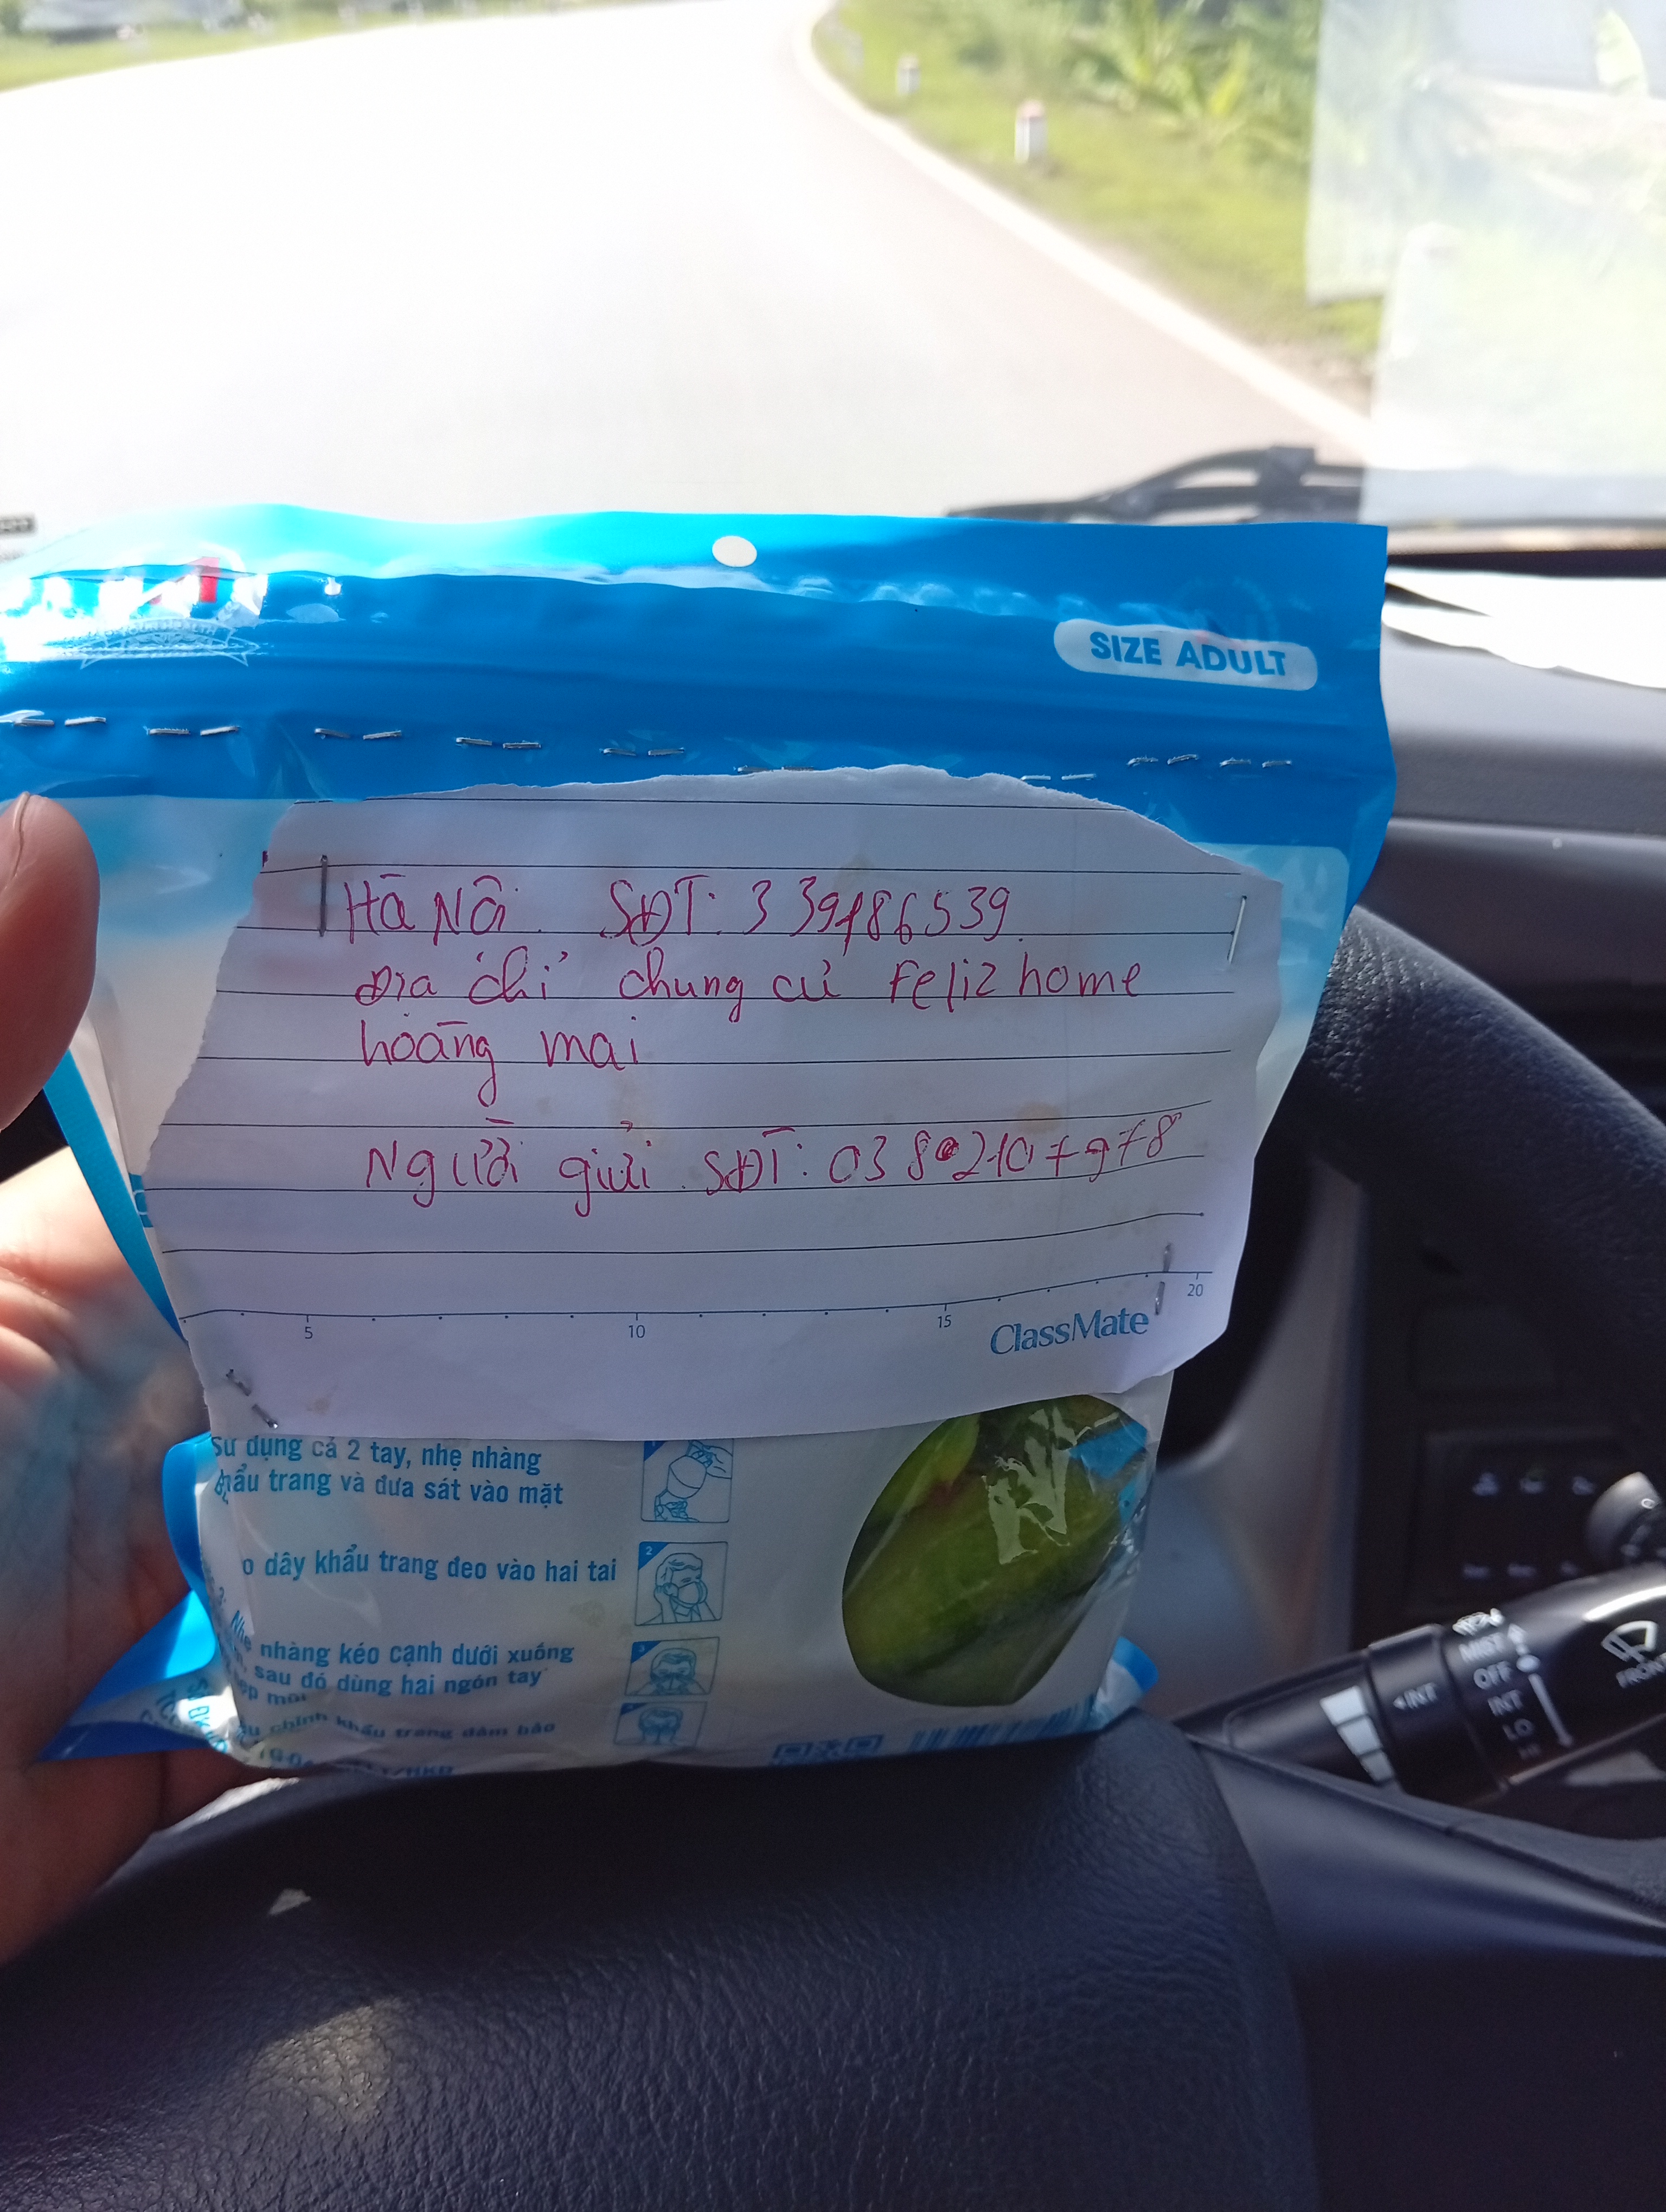 SIZE ADULT
Hà Nôi SĐT: 339186539
Địa chỉ chung cư Feliz home
hoàng mai
Người gửi SĐT: 038 2107978
5 10 15 20
ClassMate
sử dụng cả 2 tay, nhẹ nhàng
khẩu trang và đưa sát vào mặt
o dây khẩu trang đeo vào hai tai
Nhẹ nhàng kéo cạnh dưới xuống
sau đó dùng hai ngón tay
chỉnh khẩu trang đảm bảo
MIST
OFF
INT
LO
INT
FRONT